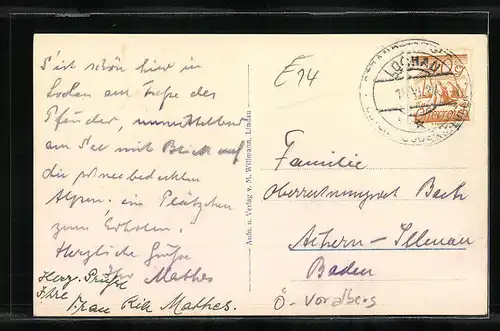 S'ist schön hier in
Lochau am Fuße des
Pfänder, unmittelbar
am See mit Blick auf
die schneebedeckten
Alpen. ein Plätzchen
zum Erholen.
Herzliche Grüße
Ihr Mathes
Herz. Grüße
Ihre
Frau Ria Mathes.
Aufn. u. Verlag v. M. Wittmann, Lindau
E14
LOCHAU
Familie
Oberrechnungsrat Bach
Achern-Illenau
Baden
Ö-Voralberg